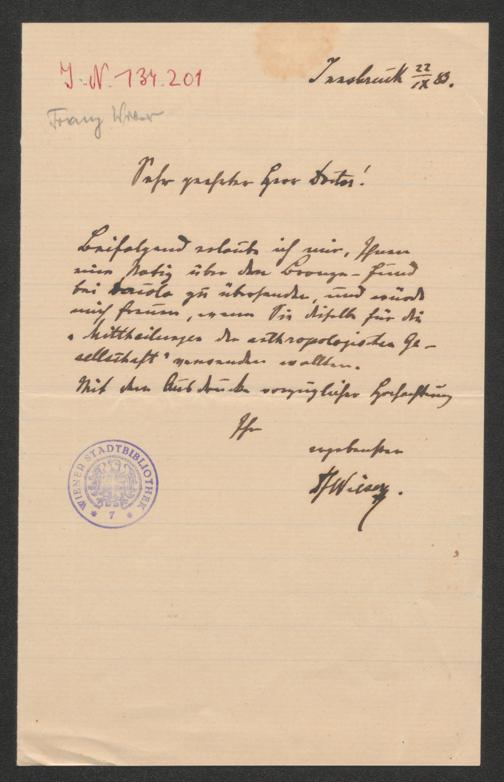 J. N. 134.201
Innsbruck 22/IX 83.
Franz Wieser
Sehr geehrter Herr Doctor!
Beifolgend erlaube ich mir, Ihnen
eine Notiz über den Bronze-Fund
bei zu übersenden, und würde
mich freuen, wenn Sie dieselbe für die
„Mittheilungen der anthropologischen Ge-
sellschaft" verwenden wollten.
Mit dem Ausdrucke vorzüglicher Hochachtung
Ihr
ergebenster
Wieser.
WIENER STADTBIBLIOTHEK
* 7 *